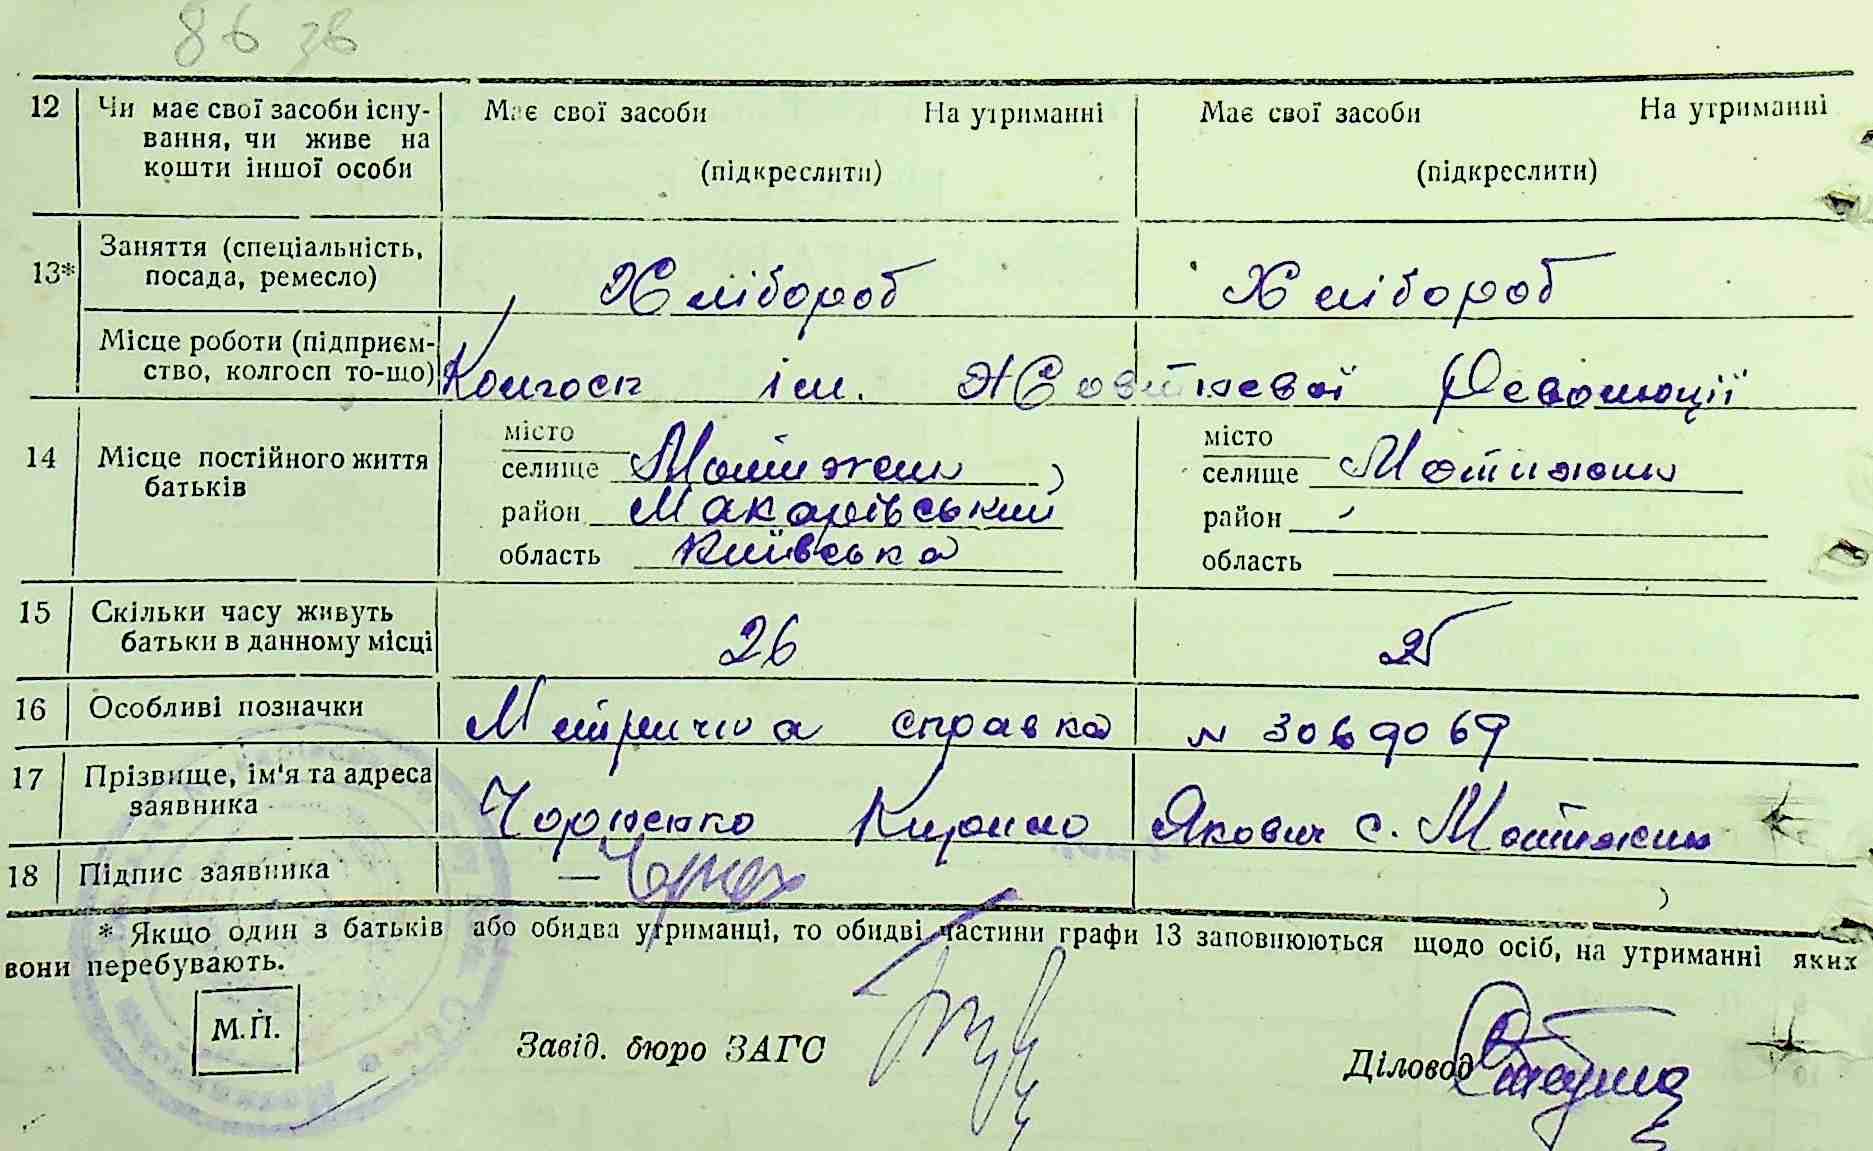 86 зв
12 Чи має свої засоби існу- Має свої засоби На утриманні Має свої засоби На утриманні
вання, чи живе на
кошти іншої особи (підкреслити) (підкреслити)
13* Заняття (спеціальність, посада, ремесло) Хлібороб Хлібороб
Місце роботи (підприєм-
ство, колгосп то-що) Колгосп ім. Жовтневої Революції
14 Місце постійного життя батьків
місто місто
селище Мотижин селище Мотижин
район Макарівський район
область Київська область
15 Скільки часу живуть
батьки в данному місці 26 25
16 Особливі позначки Метрична справка N 3069069
17 Прізвище, ім'я та адреса
заявника Чорненко Кирило Якович с. Мотижин
18 Підпис заявника
* Якщо один з батьків або обидва утриманці, то обидві частини графи 13 заповнюються щодо осіб, на утриманні яких
вони перебувають.
М.П. Завід. бюро ЗАГС Діловод